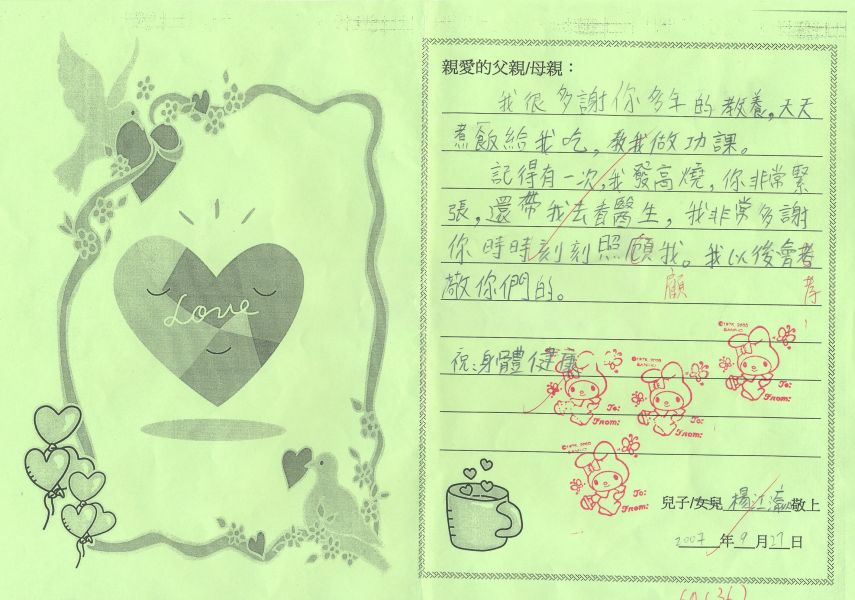 Love
親愛的父親/母親：
我很多謝你多年的教養，天天
煮飯給我吃，教我做功課。
記得有一次，我發高燒，你非常緊
張，還帶我去看醫生，我非常多謝
你時時刻刻照顧我。我以後會孝
敬你們的。
顧
孝
祝：身體健康
©1976, 2005 SANRIO
To:
From:
©1976, 2005 SANRIO
To:
From:
To:
From:
©1976, 2005 SANRIO
To:
From:
兒子/女兒 楊江瀛 敬上
2007年9月27日